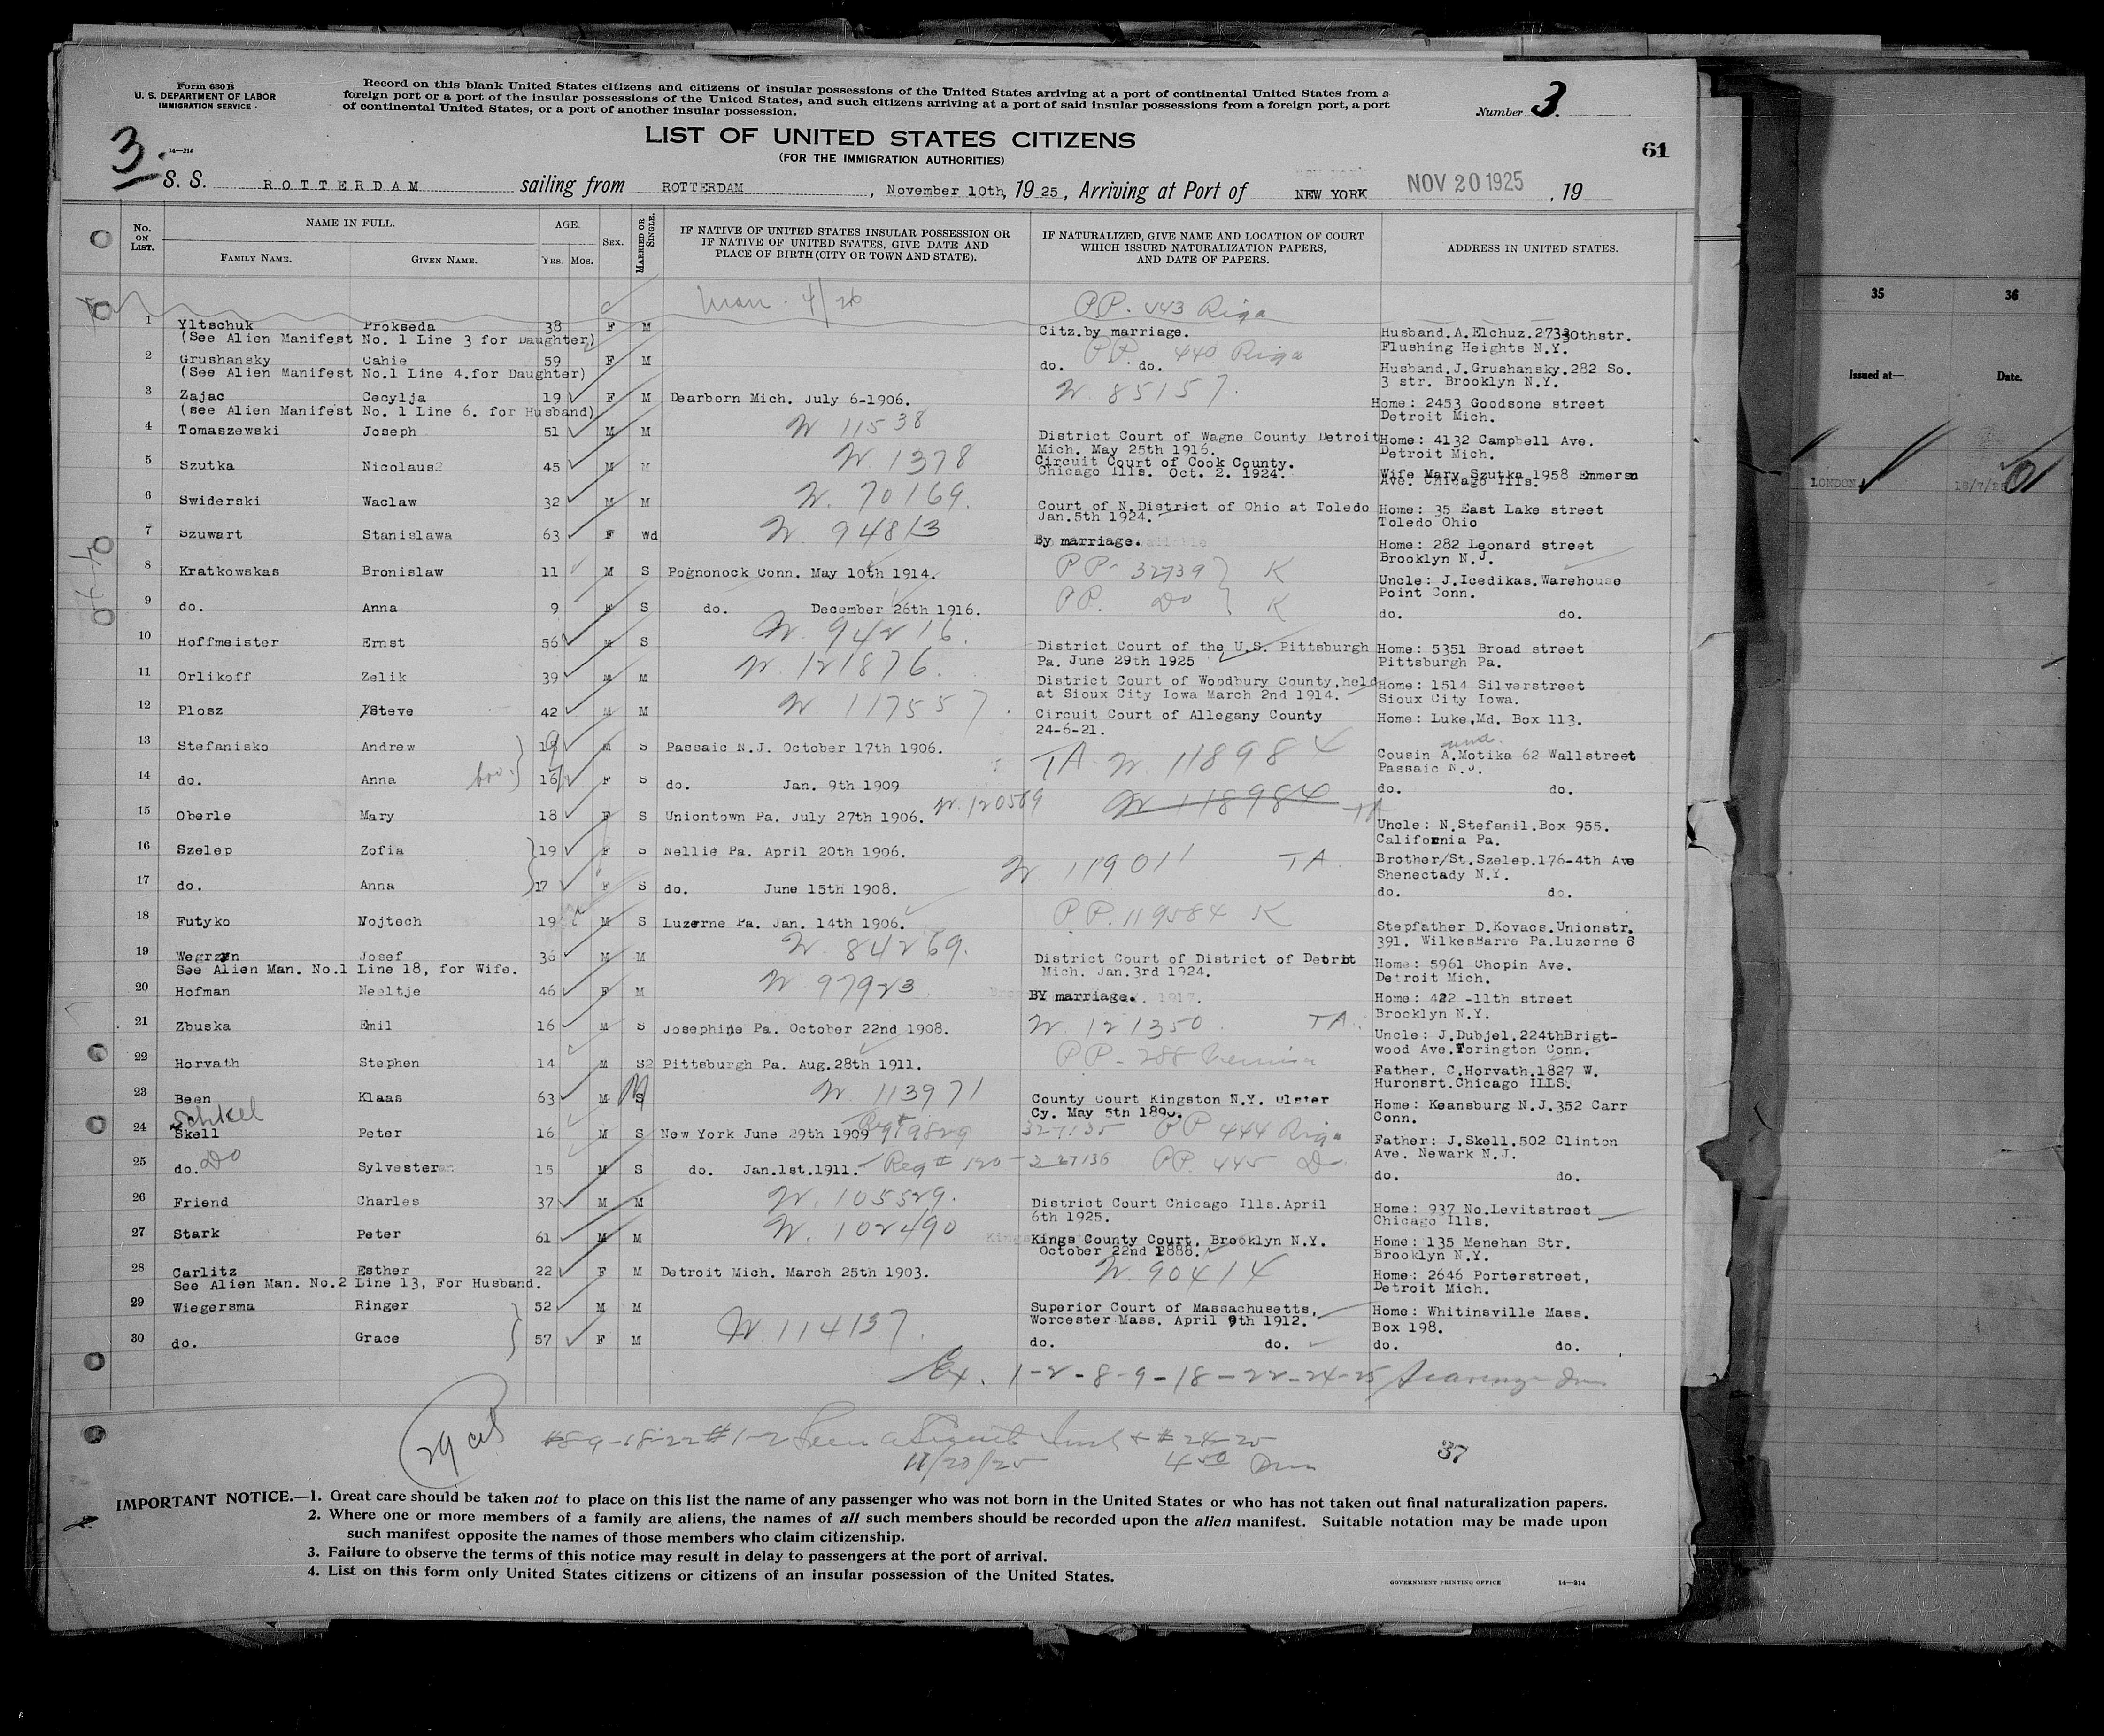 Form 630 B
U. S. DEPARTMENT OF LABOR
IMMIGRATION SERVICE
Record on this blank United States citizens and citizens of insular possessions of the United States arriving at a port of continental United States from a
foreign port or a port of the insular possessions of the United States, and such citizens arriving at a port of said insular possessions from a foreign port, a port
of continental United States, or a port of another insular possession.
Number 3.
LIST OF UNITED STATES CITIZENS
(FOR THE IMMIGRATION AUTHORITIES)
61
3.
14—214
S. S. ROTTERDAM sailing from ROTTERDAM, November 10th, 1925, Arriving at Port of NEW YORK NOV 20 1925, 19
No. ON LIST. NAME IN FULL. AGE. SEX. MARRIED OR SINGLE. IF NATIVE OF UNITED STATES INSULAR POSSESSION OR IF NATIVE OF UNITED STATES, GIVE DATE AND PLACE OF BIRTH (CITY OR TOWN AND STATE). IF NATURALIZED, GIVE NAME AND LOCATION OF COURT WHICH ISSUED NATURALIZATION PAPERS, AND DATE OF PAPERS. ADDRESS IN UNITED STATES.
FAMILY NAME. GIVEN NAME. YRS. MOS.
P.P. 443 Riga
1 Yltschuk Prokseda 38 F M Citz.by marriage. Husband.A.Elchuz.27330thstr.
(See Alien Manifest No. 1 Line 3 for Daughter) Flushing Heights N.Y.
P.P. 440 Riga
2 Grushansky Cahie 59 F M do. do. Husband.J.Grushansky.282 So.
(See Alien Manifest No.1 Line 4.for Daughter) 3 str. Brooklyn N.Y.
W 85157.
3 Zajac Cecylja 19 F M Dearborn Mich. July 6-1906. Home: 2453 Goodsone street
(see Alien Manifest No. 1 Line 6. for Husband) Detroit Mich.
W 11538
4 Tomaszewski Joseph 51 M M District Court of Wagne County Detroit Home: 4132 Campbell Ave.
Mich. May 25th 1916. Detroit Mich.
W. 1378
5 Szutka Nicolaus2 45 M M Circuit Court of Cook County. Wife Mary Szutka 1958 Emmerso
Chicago Ills. Oct. 2. 1924. Ave. Chicago Ills.
W. 70169.
6 Swiderski Waclaw 32 M M Court of N.District of Ohio at Toledo Home: 35 East Lake street
Jan.5th 1924. Toledo Ohio
W. 94813
7 Szuwart Stanislawa 63 F Wd By marriage. Home: 282 Leonard street
Brooklyn N.J.
8 Kratkowskas Bronislaw 11 M S Pognonock Conn. May 10th 1914. PP- 32739 K Uncle: J.Icedikas.Warehouse
Point Conn.
9 do. Anna 9 F S do. December 26th 1916. PP. Do K do. do.
W. 94216.
10 Hoffmeister Ernst 56 M S District Court of the U.S. Pittsburgh Home: 5351 Broad street
Pa. June 29th 1925 Pittsburgh Pa.
W. 121876.
11 Orlikoff Zelik 39 M M District Court of Woodbury County.held Home: 1514 Silverstreet
at Sioux City Iowa March 2nd 1914. Sioux City Iowa.
W. 117557.
12 Plosz Steve 42 M M Circuit Court of Allegany County Home: Luke,Md. Box 113.
24-6-21.
13 Stefanisko Andrew 19 M S Passaic N.J. October 17th 1906. TA W. 118984 Cousin A.Motika 62 Wallstreet
Passaic N.J.
14 do. Anna bro. 16 F S do. Jan. 9th 1909 do. do.
W. 120589 W 118984 TA
15 Oberle Mary 18 F S Uniontown Pa. July 27th 1906. Uncle: N.Stefanil.Box 955.
California Pa.
16 Szelep Zofia 19 F S Nellie Pa. April 20th 1906. W 119011 TA Brother/St.Szelep.176-4th Ave
Shenectady N.Y.
17 do. Anna 17 F S do. June 15th 1908. do. do.
18 Futyko Mojtech 19 M S Luzerne Pa. Jan. 14th 1906. P.P. 119584 K Stepfather D.Kovacs.Unionstr.
391. WilkesBarre Pa.Luzerne 6
W. 84269.
19 Wegrzyn Josef 36 M M District Court of District of Detroit Home: 5961 Chopin Ave.
See Alien Man. No.1 Line 18, for Wife. Mich. Jan.3rd 1924. Detroit Mich.
W 97923
20 Hofman Neeltje 46 F M BY marriage. Home: 422 -11th street
Brooklyn N.Y.
21 Zbuska Emil 16 M S Josephine Pa. October 22nd 1908. W. 121350. TA. Uncle: J.Dubjel.224thBrigt-
wood Ave.Torington Conn.
22 Horvath Stephen 14 M S2 Pittsburgh Pa. Aug.28th 1911. PP- 288 Father. C.Horvath.1827 W.
Huronsrt.Chicago ILLS.
23 Been Klaas 63 M M S W. 113971 County Court Kingston N.Y. Ulster Home: Keansburg N.J.352 Carr
Cy. May 5th 1890. Conn.
Schkel
24 Skell Peter 16 M S New York June 29th 1909 327135 PP 444 Riga Father: J.Skell.502 Clinton
Ave. Newark N.J.
25 do. Do Sylvester 15 M S do. Jan.1st.1911. Reg # 120 - 227136 PP. 445 Do do. do.
26 Friend Charles 37 M M W. 105529. District Court Chicago Ills.April Home: 937 No.Levitstreet
6th 1925. Chicago Ills.
27 Stark Peter 61 M M W. 102490 Kings County Court. Brooklyn N.Y. Home: 135 Menehan Str.
October 22nd 1888. Brooklyn N.Y.
28 Carlitz Esther 22 F M Detroit Mich. March 25th 1903. W. 90414 Home: 2646 Porterstreet,
See Alien Man. No.2 Line 13, For Husband. Detroit Mich.
29 Wiegersma Ringer 52 M M Superior Court of Massachusetts, Home: Whitinsville Mass.
Worcester Mass. April 9th 1912. Box 198.
30 do. Grace 57 F M W. 114137. do. do. do. do.
Ex. 1-2-8-9-18-22-24-25
#8-9-18-22 #1-2 + # 24-25
11/20/25 4 50
37
IMPORTANT NOTICE.—1. Great care should be taken not to place on this list the name of any passenger who was not born in the United States or who has not taken out final naturalization papers.
2. Where one or more members of a family are aliens, the names of all such members should be recorded upon the alien manifest. Suitable notation may be made upon
such manifest opposite the names of those members who claim citizenship.
3. Failure to observe the terms of this notice may result in delay to passengers at the port of arrival.
4. List on this form only United States citizens or citizens of an insular possession of the United States.
GOVERNMENT PRINTING OFFICE 14—214
35 36
Issued at— Date.
LONDON